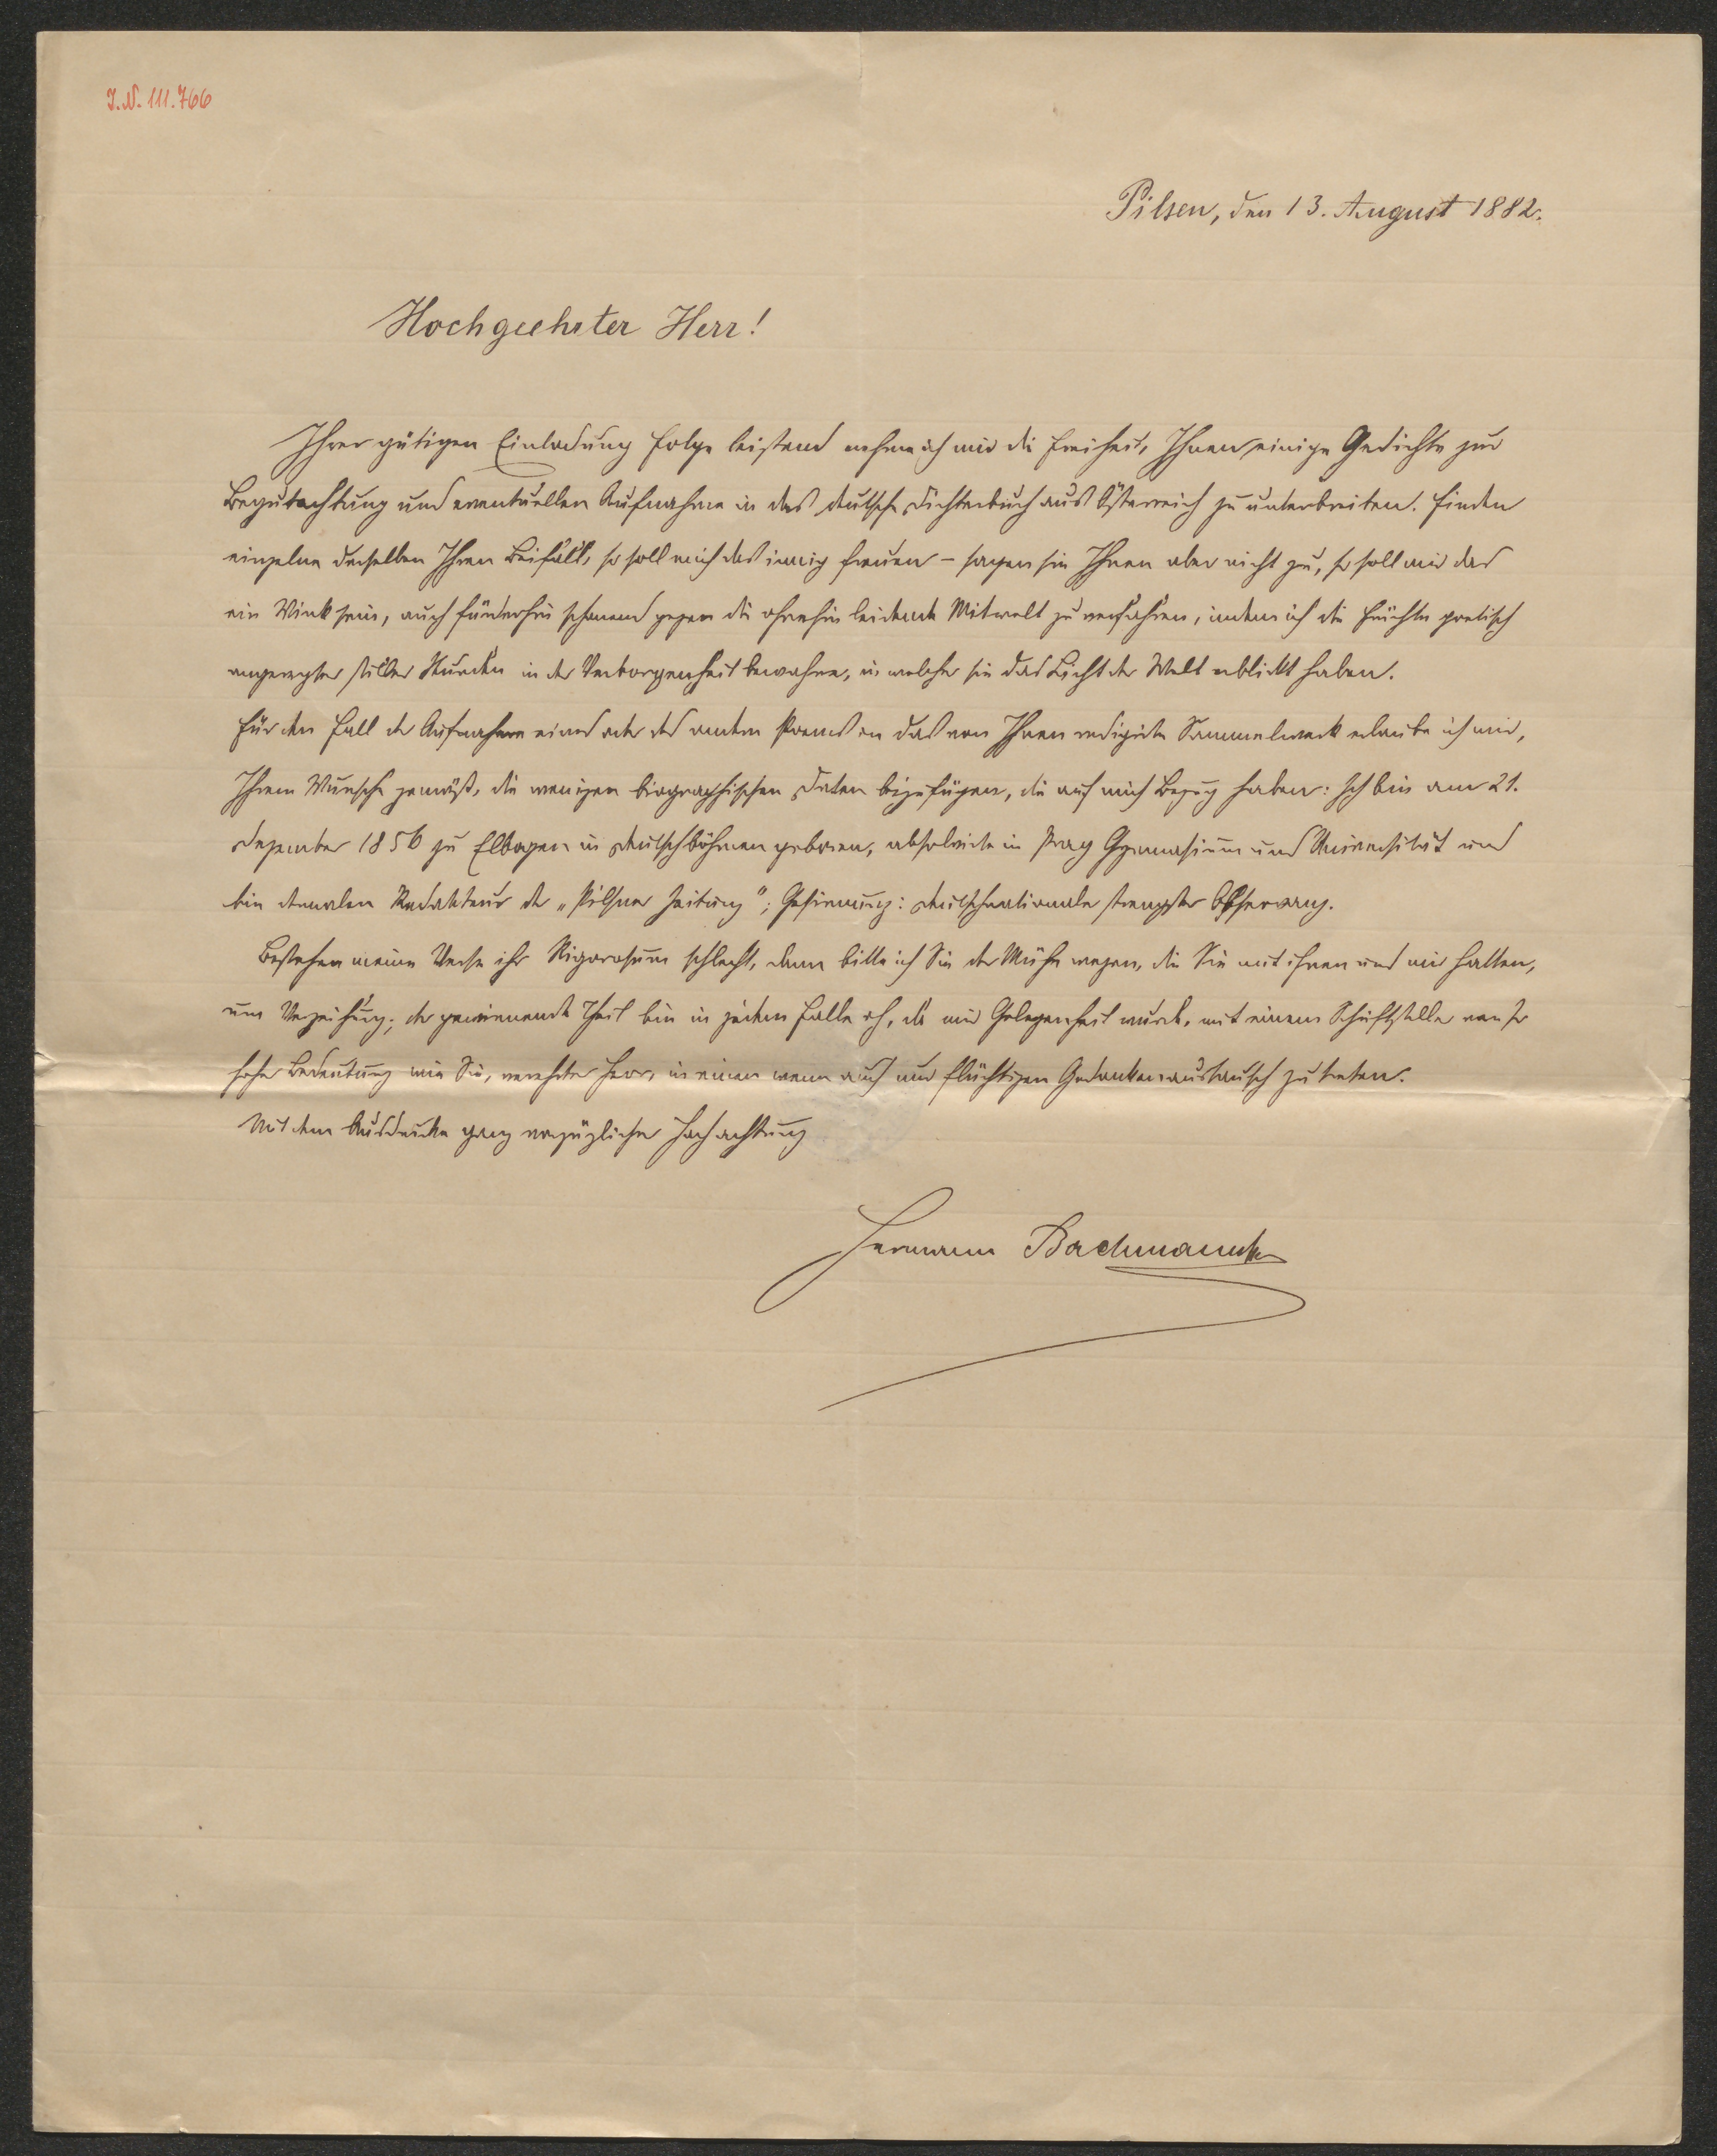 I.N. 111.766
Pilsen, den 13. August 1882.
Hochgeehrter Herr!
Ihrer gütigen Einladung Folge leistend nehme ich mir die Freiheit, Ihnen einige Gedichte zur
Begutachtung und eventuellen Aufnahme in das deutsche Dichterbuch aus Österreich zu unterbreiten. Finden
einzelne derselben Ihren Beifall, so soll mich das innig freuen – sagen sie Ihnen aber nicht zu, so soll mir das
ein Wink sein, auch fürderhin schonend gegen die ohnehin leidende Mitwelt zu verfahren, indem ich die Früchte poetisch
angeregter stiller Stunden in der Verborgenheit bewahre, in welcher sie das Licht der Welt erblickt haben.
Für den Fall der Aufnahme eines oder des andern Poems in das von Ihnen redigirte Sammelwerk erlaube ich mir,
Ihrem Wunsche gemäß, die wenigen biographischen Daten beizufügen, die auf mich Bezug haben: Ich bin am 21.
Dezember 1856 zu Elbogen in Deutschböhmen geboren, absolvirte in Prag Gymnasium und Universität und
bin dermalen Redakteur der „Pilsner Zeitung"; Gesinnung: deutschnationale strengster Observanz.
Bestehen meine Verse ihr Rigorosum schlecht, dann bitte ich Sie der Mühe wegen, die Sie mit ihnen und mir hatten,
um Verzeihung; der gewinnende Theil bin in jedem Falle ich, da mir Gelegenheit wurde, mit einem Schriftsteller von so
hoher Bedeutung wie Sie, verehrter Herr, in einen wenn auch nur flüchtigen Gedankenaustausch zu treten.
Mit dem Ausdrucke ganz vorzüglicher Hochachtung
Hermann Bachmann